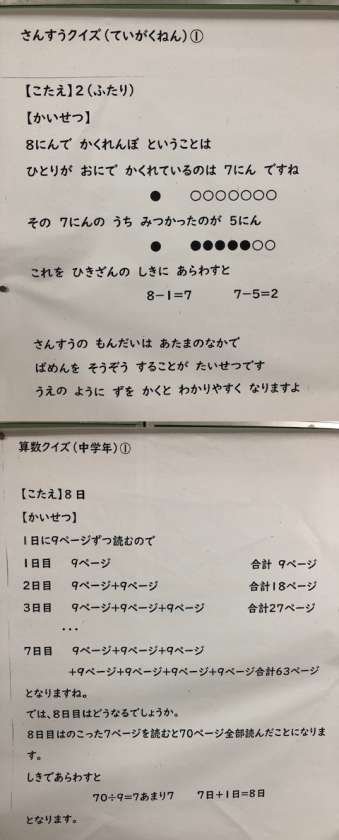 さんすうクイズ(ていがくねん)①
【こたえ】2(ふたり)
【かいせつ】
8にんで かくれんぼ ということは
ひとりが おにで かくれているのは 7にん ですね
● ○○○○○○○
その 7にんの うち みつかったのが 5にん
● ●●●●●○○
これを ひきざんの しきに あらわすと
8-1=7 7-5=2
さんすうの もんだいは あたまのなかで
ばめんを そうぞう することが たいせつです
うえの ように ずを かくと わかりやすく なりますよ
算数クイズ(中学年)①
【こたえ】8日
【かいせつ】
1日に9ページずつ読むので
1日目 9ページ 合計 9ページ
2日目 9ページ+9ページ 合計18ページ
3日目 9ページ+9ページ+9ページ 合計27ページ
・・・
7日目 9ページ+9ページ+9ページ
+9ページ+9ページ+9ページ+9ページ合計63ページ
となりますね。
では、8日目はどうなるでしょうか。
8日目はのこった7ページを読むと70ページ全部読んだことになりま
す。
しきであらわすと
70÷9=7あまり7 7日+1日=8日
となります。